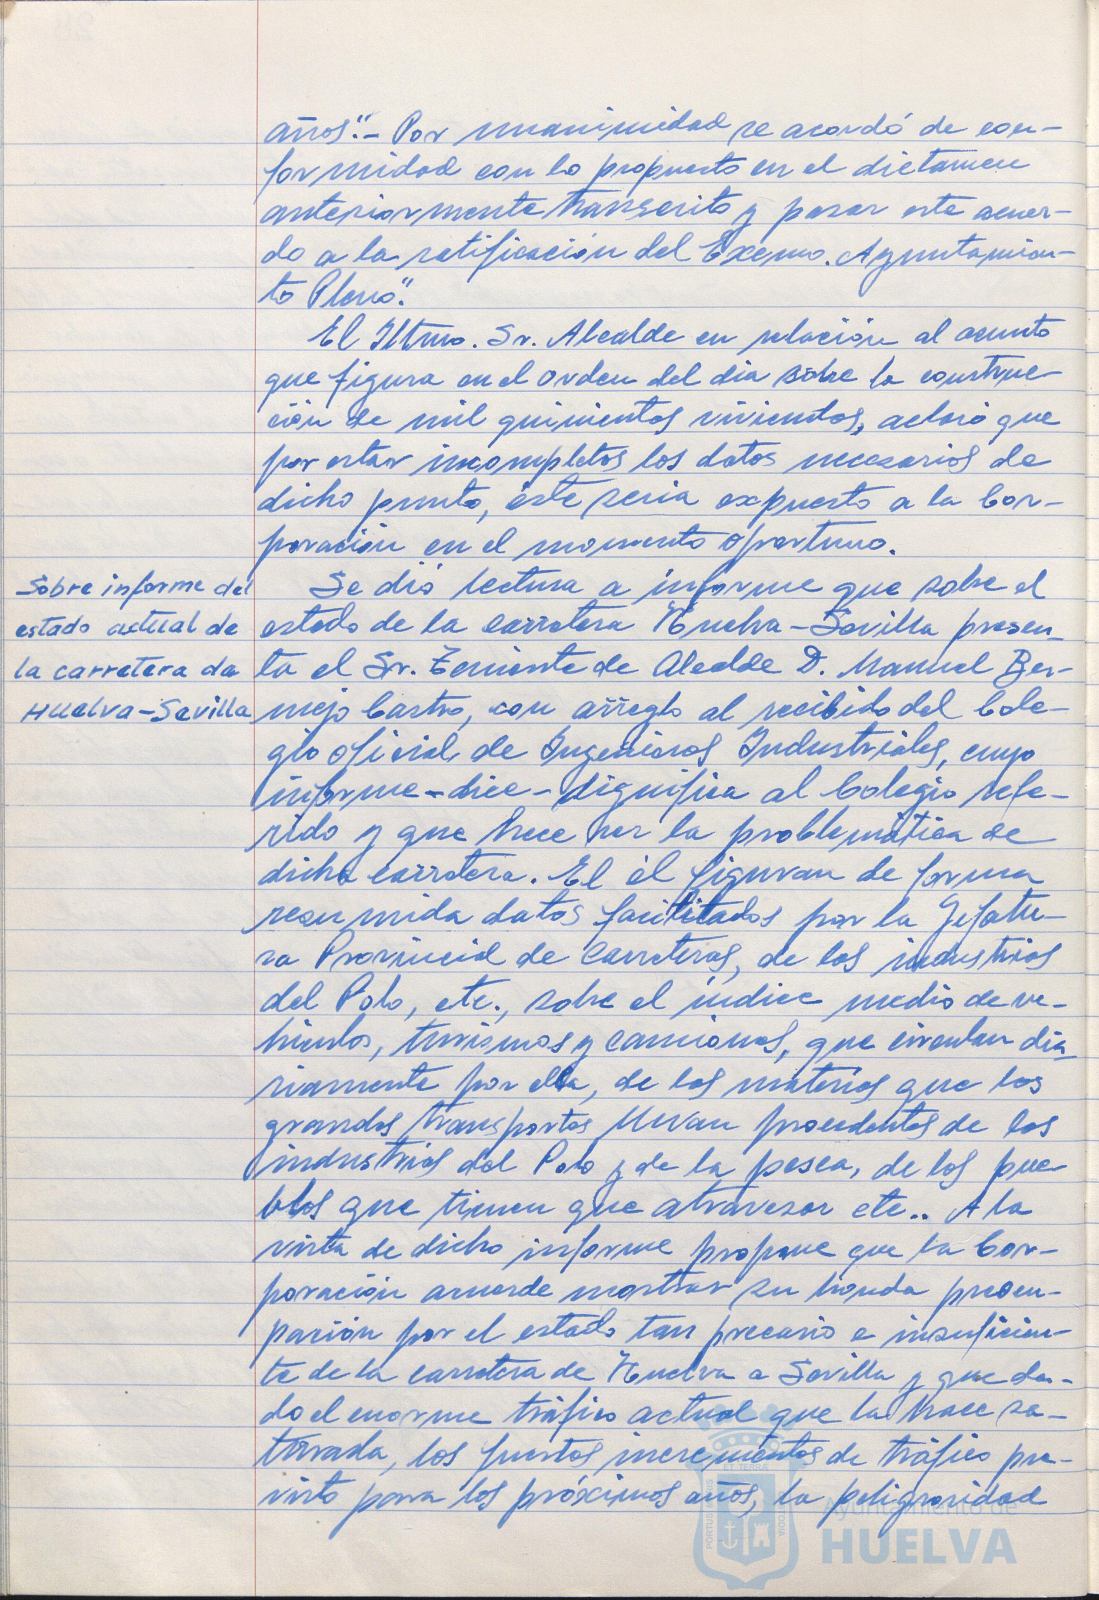 años".- Por unanimidad se acordó de con-
formidad con lo propuesto en el dictamen
anteriormente transcrito y pasar este acuer-
do a la ratificación del Excmo. Ayuntamien-
to Pleno".
El Iltmo. Sr. Alcalde en relación al asunto
que figura en el orden del dia sobre la construc-
ción de mil quinientos viviendas, aclaró que
por estar incompletos los datos necesarios de
dicho punto, éste seria expuesto a la Cor-
poración en el momento oportuno.
Sobre informe del
estado actual de
la carretera de
Huelva-Sevilla
Se dió lectura a informe que sobre el
estado de la carretera Huelva-Sevilla presen-
ta el Sr. Teniente de Alcalde D. Manuel Ber-
mejo Castro, con arreglo al recibido del Cole-
gio oficial de Ingenieros Industriales, cuyo
informe-dice-dignifica al Colegio refe-
rido y que hace ver la problemática de
dicha carretera. El él figuran de forma
resumida datos facilitados por la Jefatu-
ra Provincial de Carreteras, de las industrias
del Polo, etc., sobre el índice medio de ve-
hiculos, turismos y camiones, que circulan dia-
riamente por ella, de las materias que los
grandes transportes llevan procedentes de las
industrias del Polo y de la pesca, de los pue-
blos que tienen que atravesar etc.. A la
vista de dicho informe propone que la Cor-
poración acuerde mostrar su honda preocu-
pación por el estado tan precario e insuficien-
te de la carretera de Huelva a Sevilla y que da-
do el enorme tráfico actual que la hace sa-
turada, los fuertes incrementos de tráfico pre-
visto para los próximos años, la peligrosidad
Ayuntamiento de
HUELVA